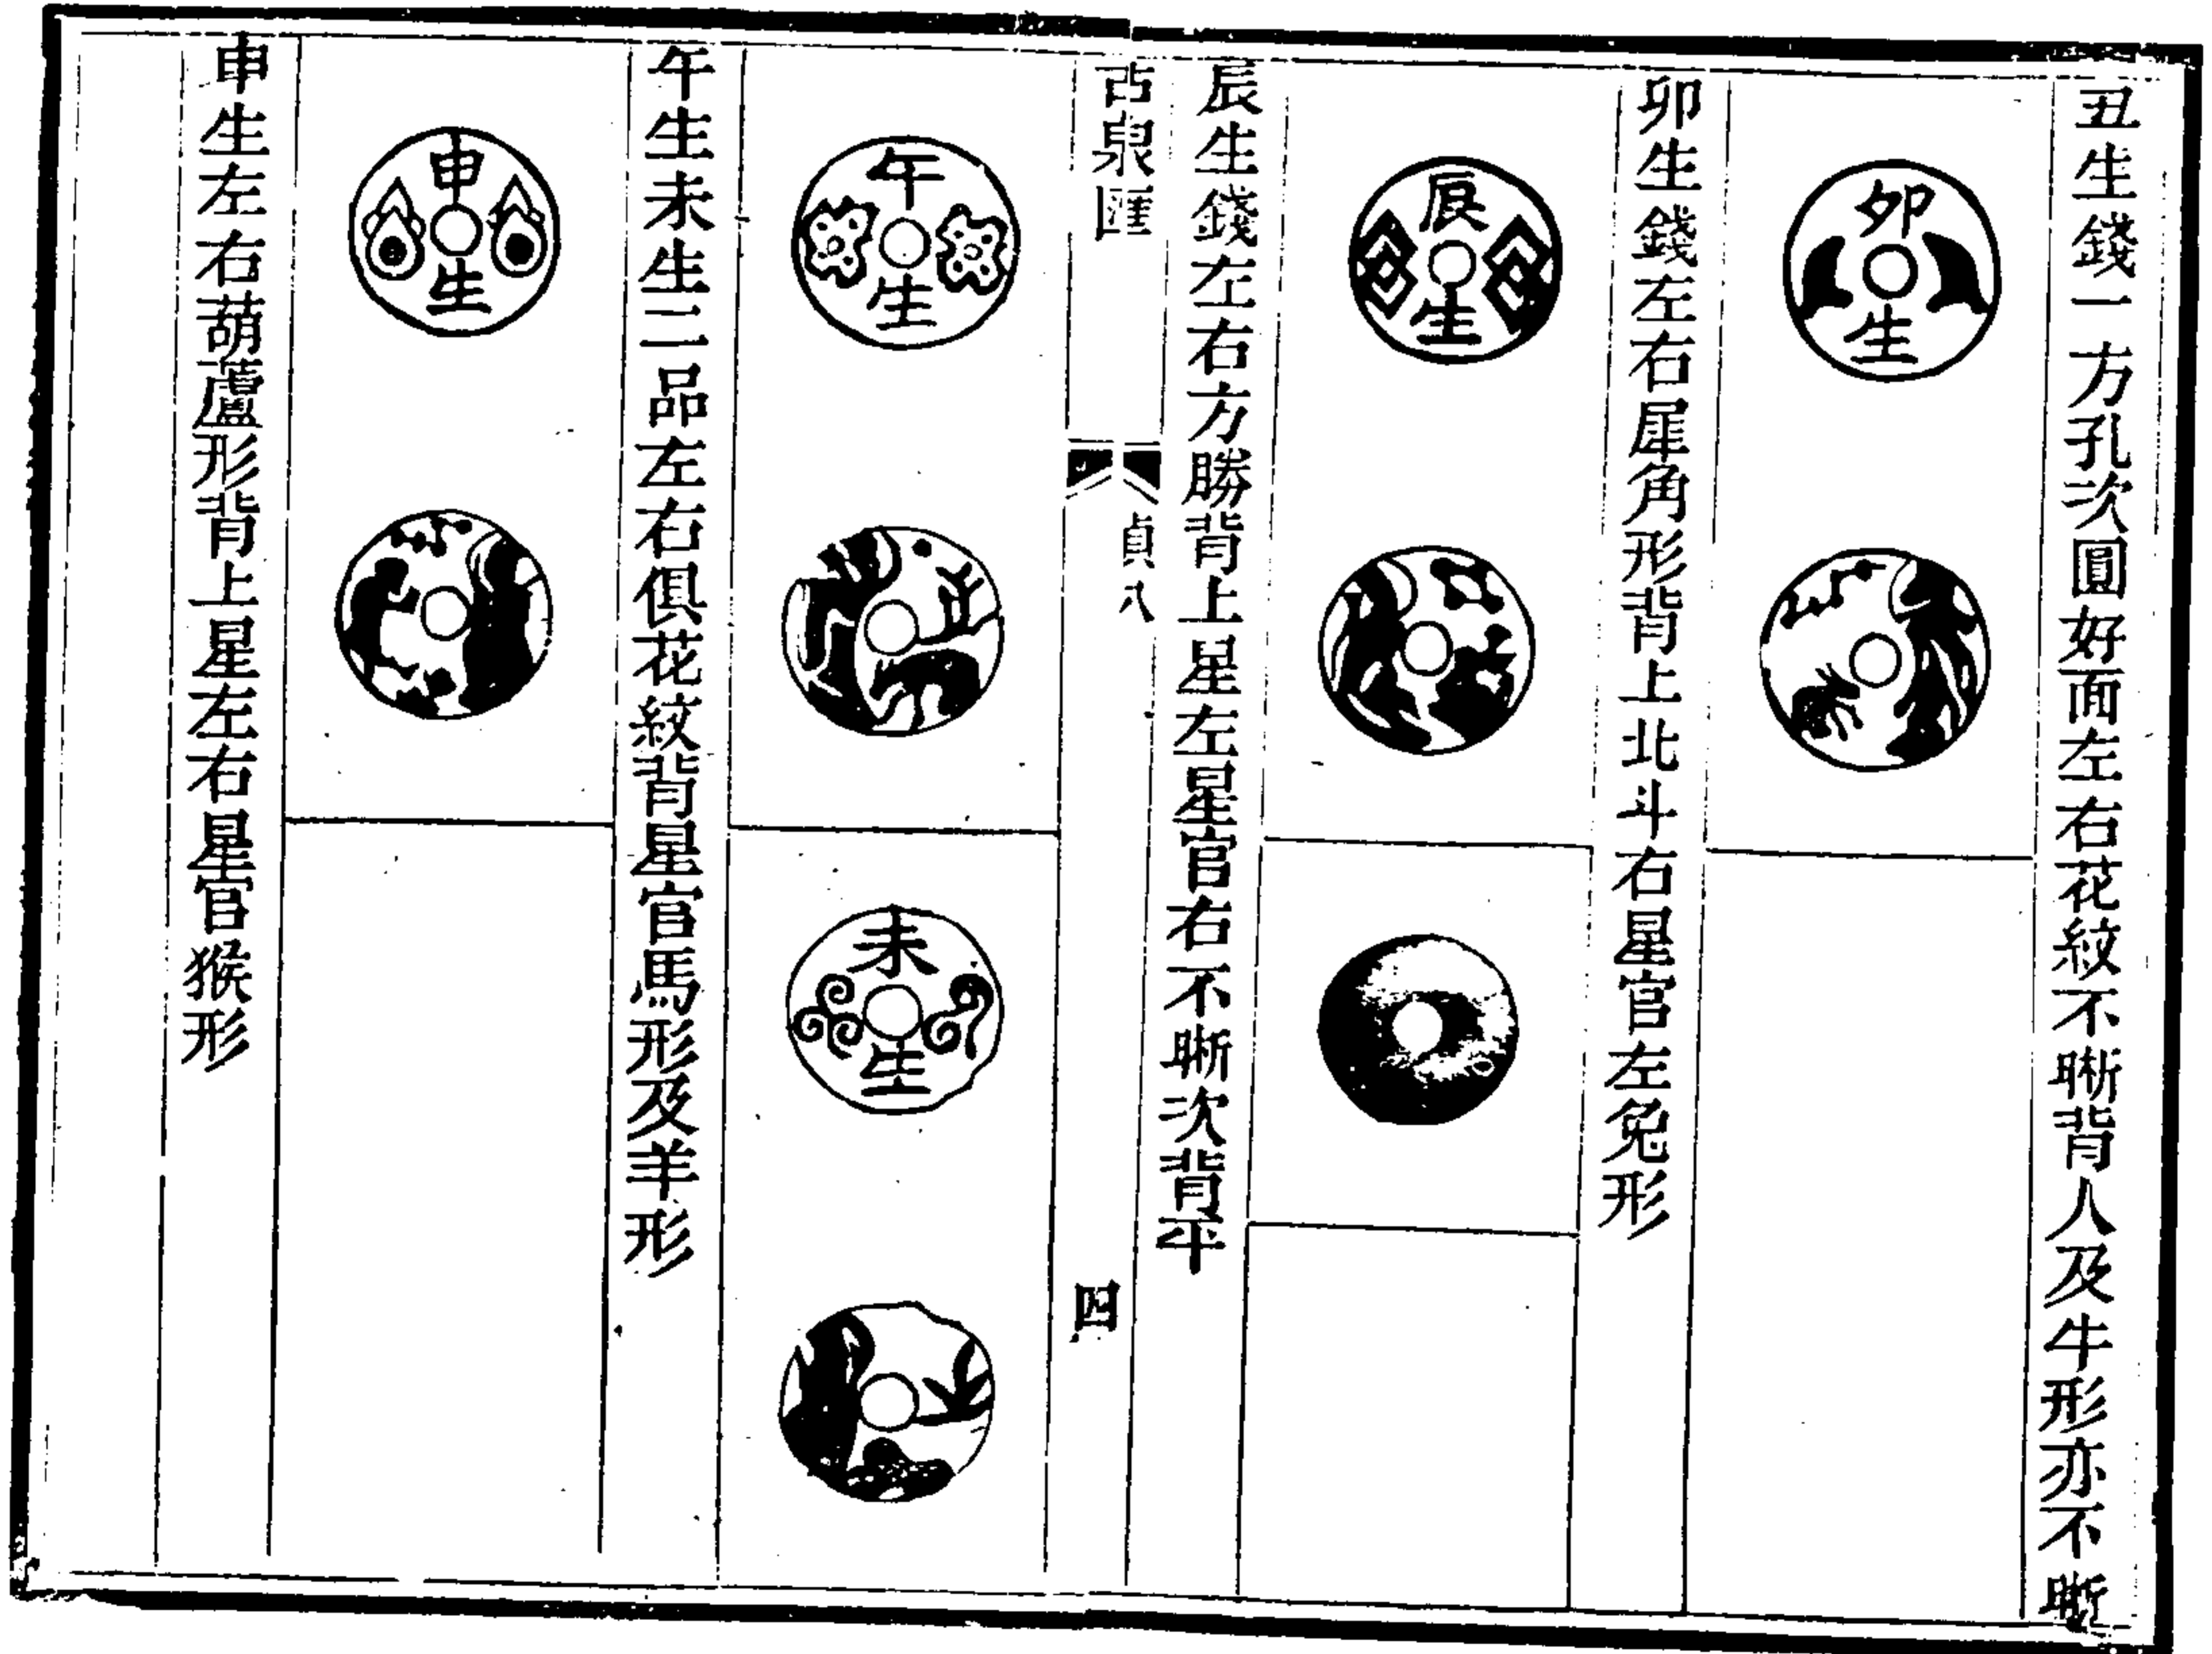 丑生錢一方孔次圓好面左右花紋不晰背人及牛形亦不晰
卯
生
卯生錢左右犀角形背上北斗右星官左兔形
辰
生
辰生錢左右方勝背上星左星官右不晰次背平
古泉匯
貞八
四
午
生
未
生
午生未生二品左右俱花紋背星官馬形及羊形
申
生
申生左右葫蘆形背上星左右星官猴形